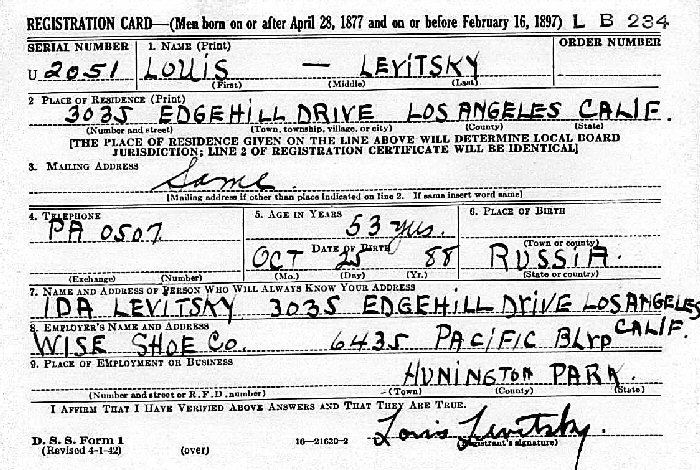 REGISTRATION CARD—(Men born on or after April 28, 1877 and on or before February 16, 1897) L B 234
SERIAL NUMBER 1. NAME (Print) ORDER NUMBER
U 2051 LOUIS — LEVITSKY
(First) (Middle) (Last)
2 PLACE OF RESIDENCE (Print)
3035 EDGEHILL DRIVE LOS ANGELES CALIF.
(Number and street) (Town, township, village, or city) (County) (State)
[THE PLACE OF RESIDENCE GIVEN ON THE LINE ABOVE WILL DETERMINE LOCAL BOARD
JURISDICTION; LINE 2 OF REGISTRATION CERTIFICATE WILL BE IDENTICAL]
3. MAILING ADDRESS
Same
[Mailing address if other than place indicated on line 2. If same insert word same]
4. TELEPHONE 5. AGE IN YEARS 6. PLACE OF BIRTH
PA 0507 53 yrs.
DATE OF BIRTH (Town or county)
OCT 25 88 RUSSIA.
(Exchange) (Number) (Mo.) (Day) (Yr.) (State or country)
7. NAME AND ADDRESS OF PERSON WHO WILL ALWAYS KNOW YOUR ADDRESS
IDA LEVITSKY 3035 EDGEHILL DRIVE LOS ANGELES
CALIF.
8. EMPLOYER'S NAME AND ADDRESS
WISE SHOE CO. 6435 PACIFIC BLVD
9. PLACE OF EMPLOYMENT OR BUSINESS
HUNINGTON PARK.
(Number and street or R. F. D. number) (Town) (County) (State)
I AFFIRM THAT I HAVE VERIFIED ABOVE ANSWERS AND THAT THEY ARE TRUE.
Louis Levitsky.
D. S. S. Form 1 (Registrant's signature)
(Revised 4-1-42) (over) 16—21630-2